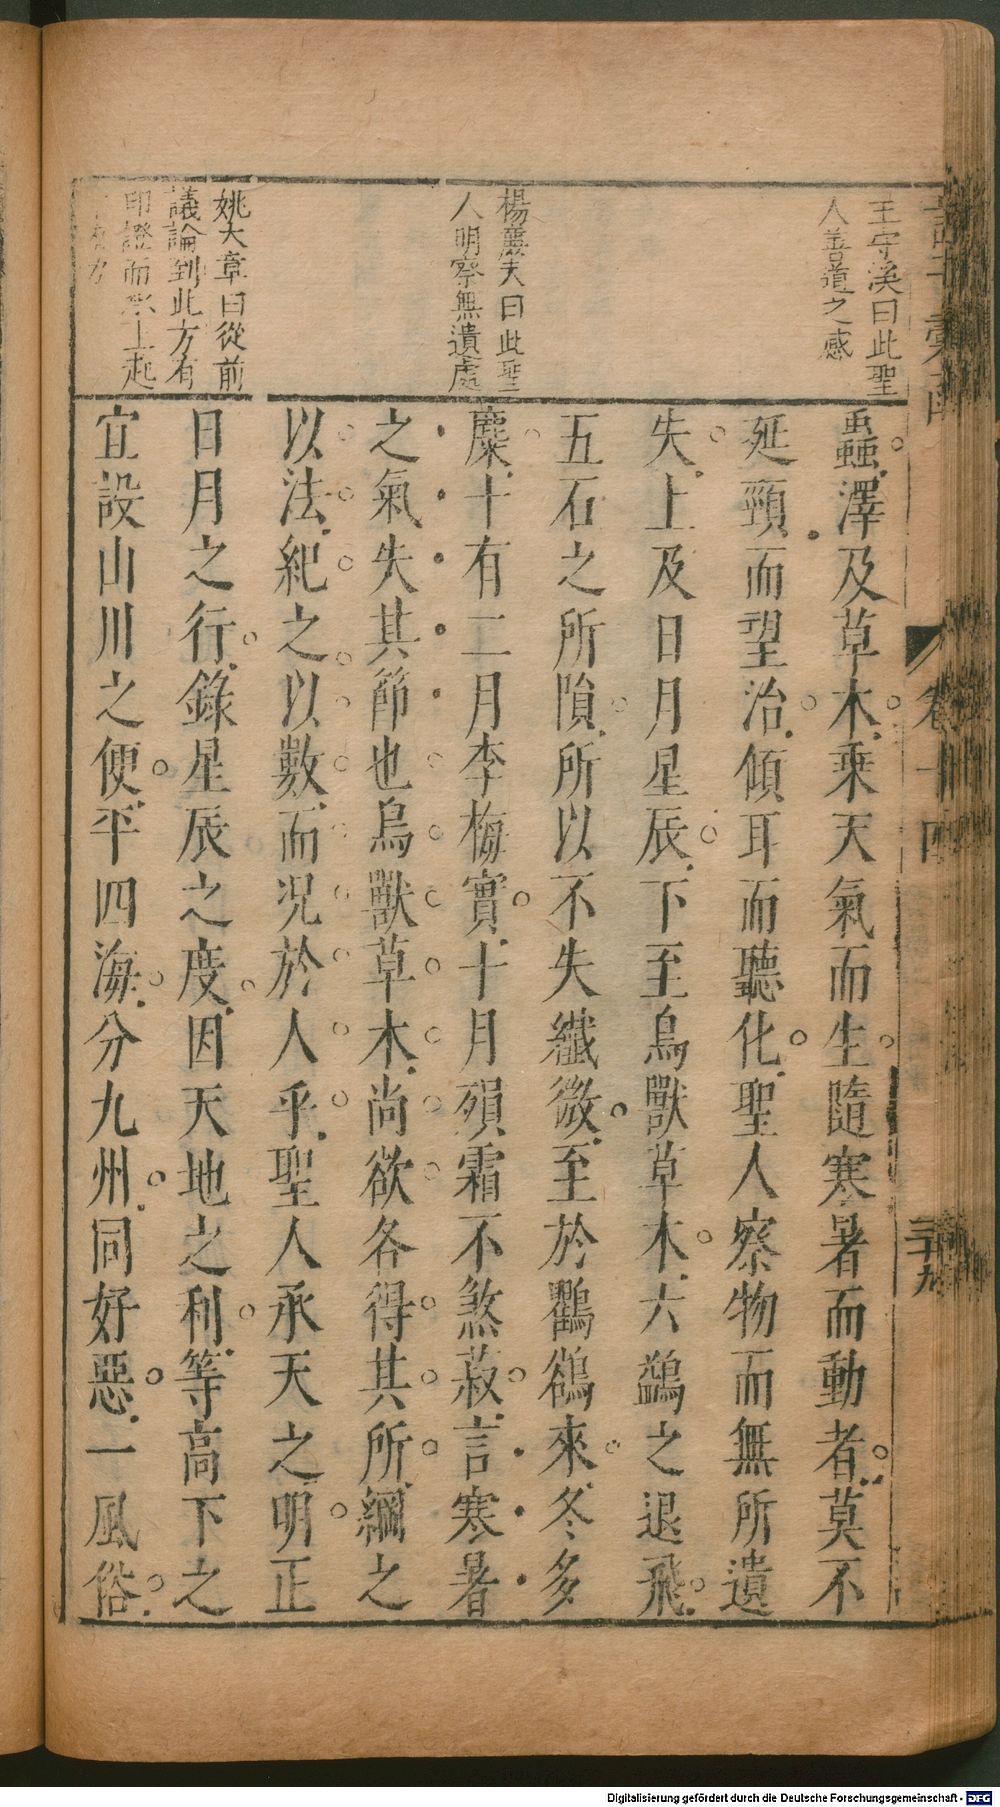 王守溪曰此聖
人善道之感
楊慶夫曰此聖
人明察無遺處
姚大章曰從前
議論到此方有
印證而承上起
蟲澤及草木乘天氣而生隨寒暑而動者莫不
延頸而望治傾耳而聽化聖人察物而無所遺
失上及日月星辰下至鳥獸草木六鷁之退飛
五石之所隕所以不失纖微至於鸜鵒來冬多
麋十有二月李梅實十月殞霜不煞菽言寒暑
之氣失其節也鳥獸草木尚欲各得其所綱之
以法紀之以數而況於人乎聖人承天之明正
日月之行錄星辰之度因天地之利等高下之
宜設山川之便平四海分九州同好惡一風俗
卷十四
三十九
Digitalisierung gefördert durch die Deutsche Forschungsgemeinschaft - DFG